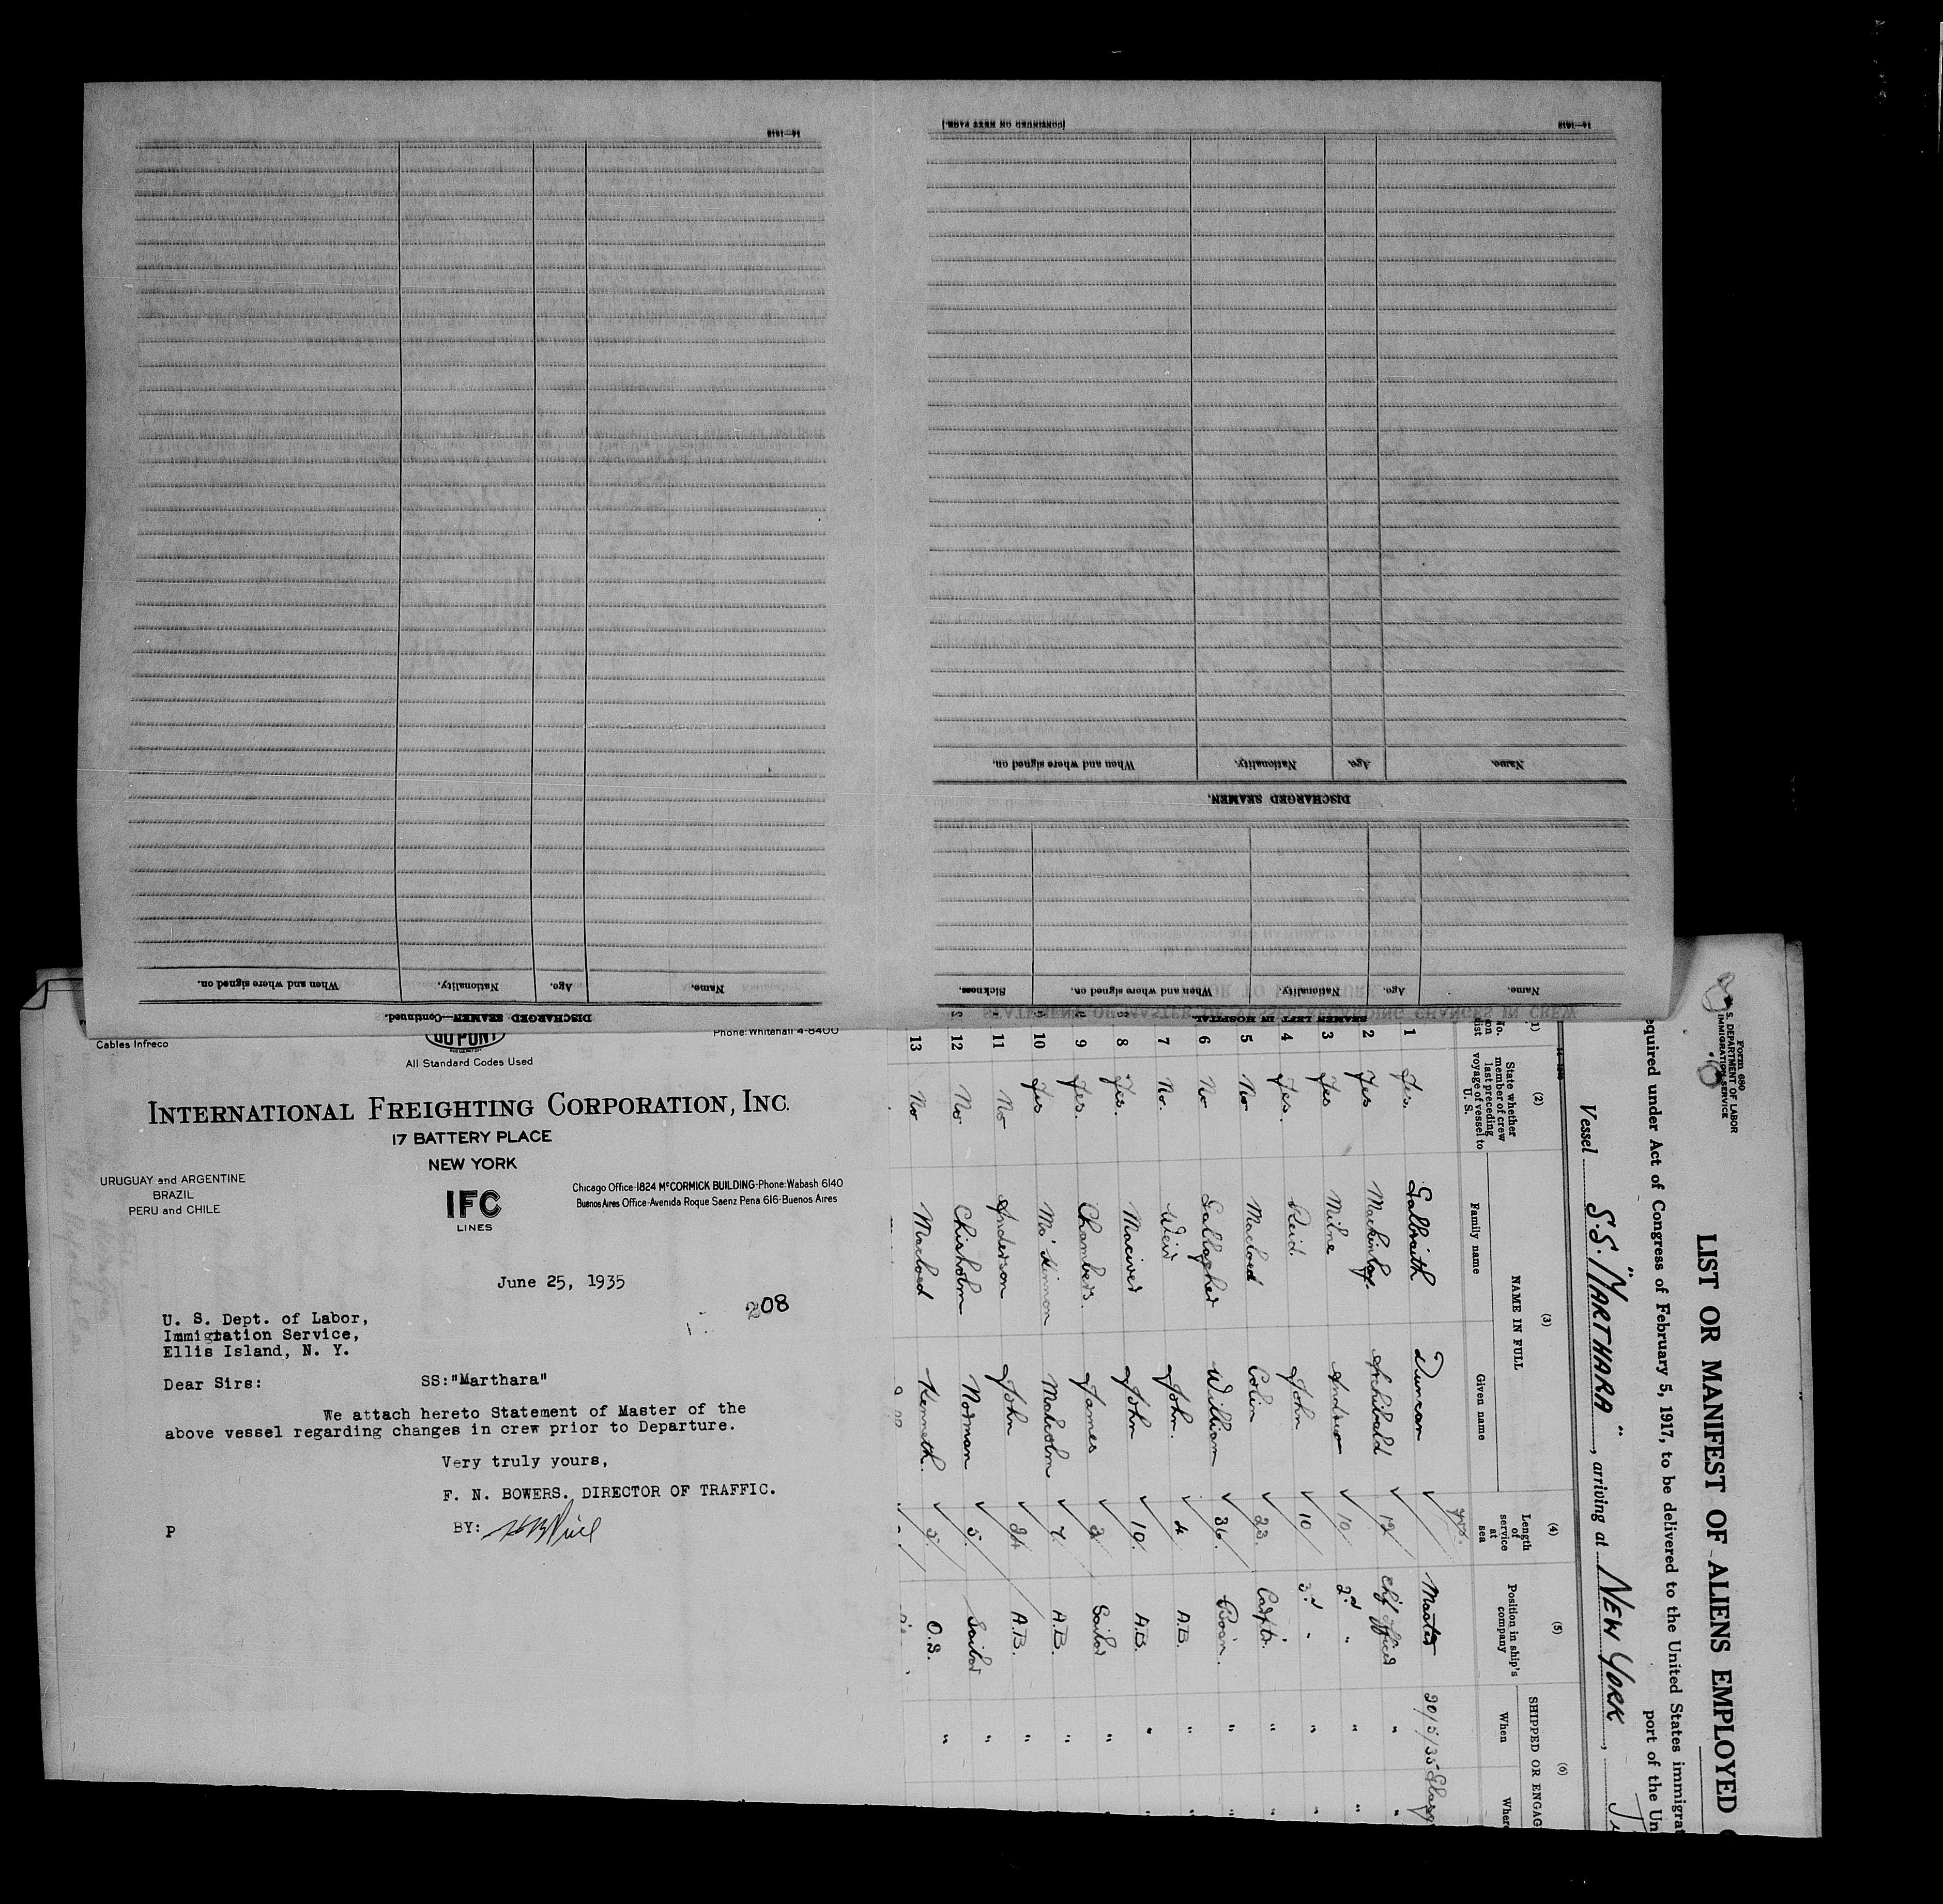 16—1618
[CONTINUED ON NEXT PAGE.]
16—1618
When and where signed on.
Nationality.
Age.
Name.
DISCHARGED SEAMEN.
Name.
Age.
Nationality.
When and where signed on.
Sickness.
SEAMEN LEFT IN HOSPITAL.
STATEMENT OF MASTER OF VESSEL REGARDING CHANGES IN CREW
Name.
Age.
Nationality.
When and where signed on.
DISCHARGED SEAMEN—Continued.
Cables Infreco
DU PONT
All Standard Codes Used
Phone: Whitehall 4-8400
INTERNATIONAL FREIGHTING CORPORATION, INC.
17 BATTERY PLACE
NEW YORK
URUGUAY and ARGENTINE
BRAZIL
PERU and CHILE
IFC
LINES
Chicago Office-1824 McCORMICK BUILDING-Phone: Wabash 6140
Buenos Aires Office-Avenida Roque Saenz Pena 616-Buenos Aires
June 25, 1935
208
U. S. Dept. of Labor,
Immigration Service,
Ellis Island, N. Y.
Dear Sirs:
SS:"Marthara"
We attach hereto Statement of Master of the
above vessel regarding changes in crew prior to Departure.
Very truly yours,
F. N. BOWERS. DIRECTOR OF TRAFFIC.
P
BY:
Form 680
U. S. DEPARTMENT OF LABOR
IMMIGRATION SERVICE
LIST OR MANIFEST OF ALIENS EMPLOYED
equired under Act of Congress of February 5, 1917, to be delivered to the United States immigrat
port of the Un
Vessel S.S. "MARTHARA", arriving at NEW YORK,
(1) (2) (3) (4) (5) (6)
No. on list
State whether member of crew last preceding voyage of vessel to U. S.
NAME IN FULL
Family name
Given name
Length of service at sea
Position in ship's company
SHIPPED OR ENGAG
When
Where
yrs.
1 Yes. Galbraith Duncan Master 20/5/35 Glasg
2 Yes Mackinlay Archibald 12 Chf Officer " "
3 Yes Milne Andrew 10 2nd " " "
4 Yes. Reid John 10 3rd " " "
5 No Macleod Colin 23 Carptr. " "
6 No Gallagher William 36 Bosn. " "
7 No. Weir John. 4 A.B. " "
8 Yes. Maciver John 10 A.B. " "
9 Yes. Chambers. James 2 Sailor "
10 Yes McKinnon Malcolm 7 A.B. "
11 No Anderson John 24 A.B. "
12 No Chisholm Norman 5 Sailor "
13 No Macleod Kenneth. 5 O.S. "